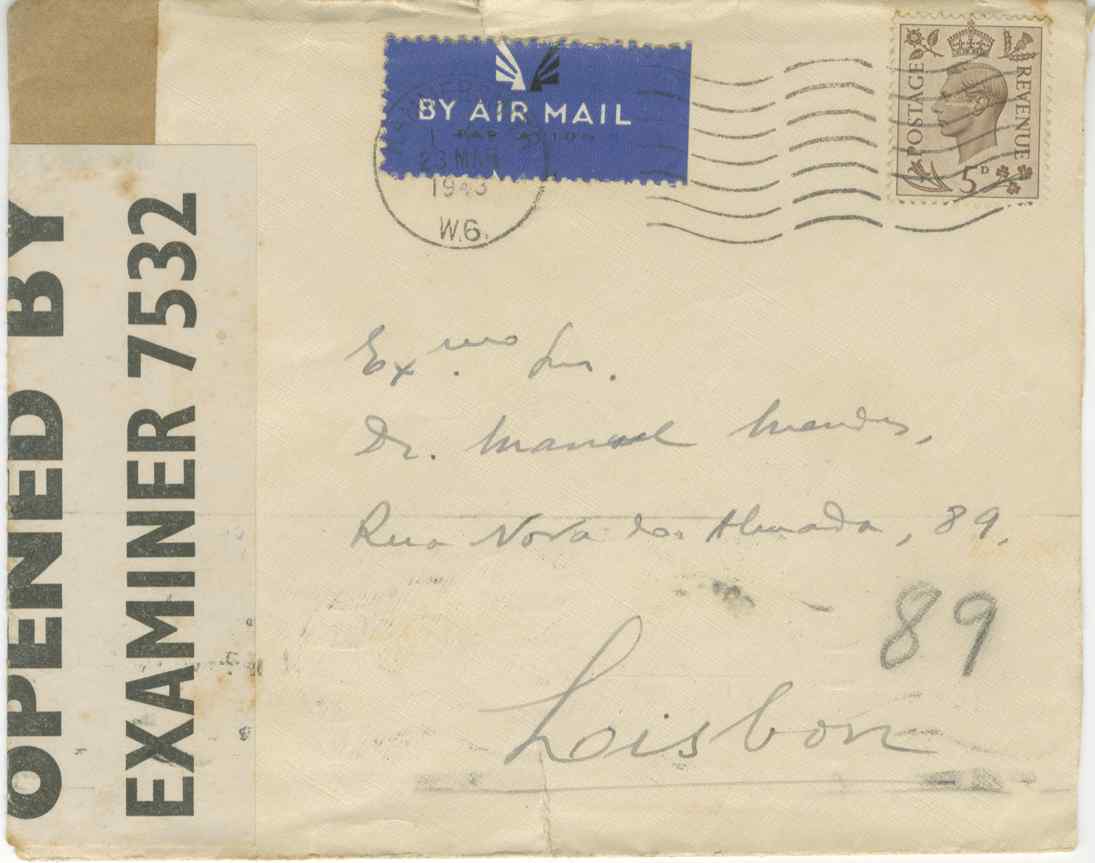 OPENED BY
EXAMINER 7532
BY AIR MAIL
PAR AVION
23 MAR
1943
W.6.
POSTAGE
REVENUE
5D
Exmo Snr.
Dr. Manuel Mendes,
Rua Nova do Almada, 89.
89
Lisbon